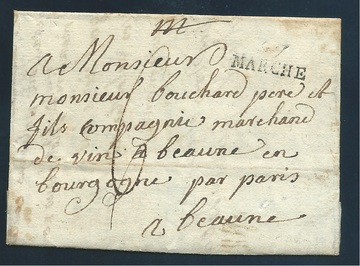 m
a Monsieur
MARCHE
monsieur bouchard pere et
fils compagnie marchand
de vin a beaune en
bourgogne par paris
a beaune